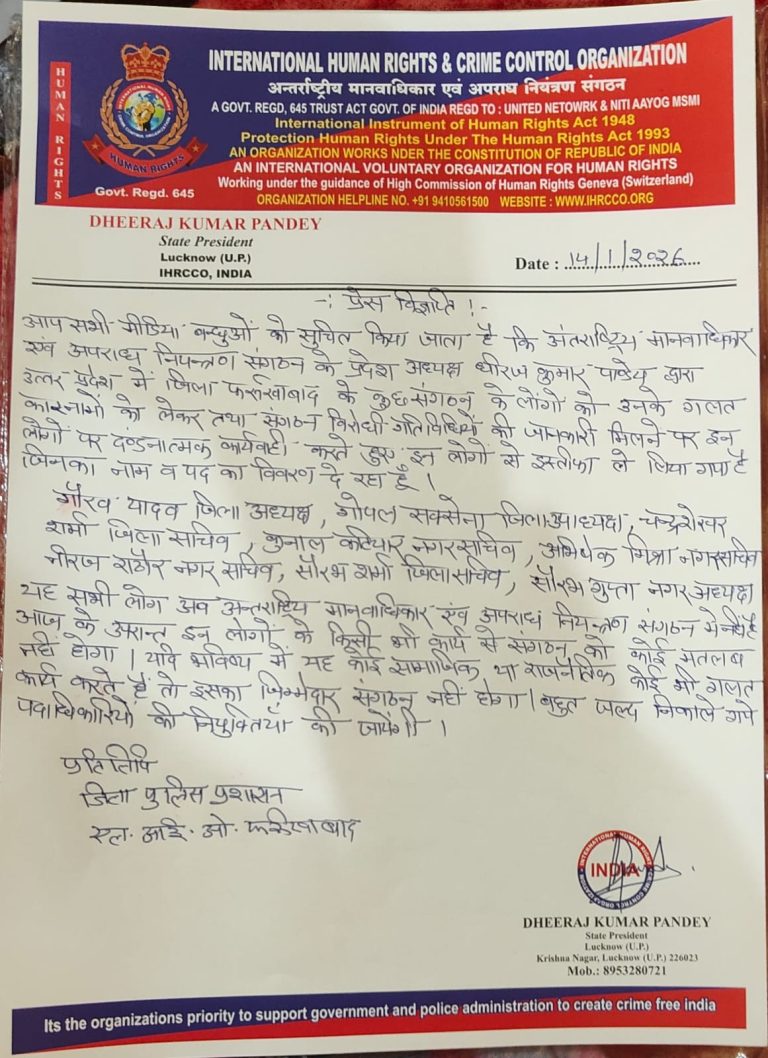 INTERNATIONAL HUMAN RIGHTS & CRIME CONTROL ORGANIZATION
अन्तर्राष्ट्रीय मानवाधिकार एवं अपराध नियंत्रण संगठन
A GOVT. REGD, 645 TRUST ACT GOVT. OF INDIA REGD TO : UNITED NETOWRK & NITI AAYOG MSMI
International Instrument of Human Rights Act 1948
Protection Human Rights Under The Human Rights Act 1993
AN ORGANIZATION WORKS NDER THE CONSTITUTION OF REPUBLIC OF INDIA
AN INTERNATIONAL VOLUNTARY ORGANIZATION FOR HUMAN RIGHTS
Working under the guidance of High Commission of Human Rights Geneva (Switzerland)
ORGANIZATION HELPLINE NO. +91 9410561500 WEBSITE : WWW.IHRCCO.ORG
HUMAN RIGHTS
HUMAN RIGHTS
Govt. Regd. 645
DHEERAJ KUMAR PANDEY
State President
Lucknow (U.P.)
IHRCCO, INDIA
Date : 14/1/2026
-: प्रेस विज्ञप्ति :-
आप सभी मीडिया बन्धुओं को सूचित किया जाता है कि अंतराष्ट्रिय मानवाधिकार
एवं अपराध नियन्त्रण संगठन के प्रदेश अध्यक्ष धीरज कुमार पाण्डेय द्वारा
उत्तर प्रदेश में जिला फर्रुखाबाद के कुछ संगठन के लोगों को उनके गलत
कारनामों को लेकर तथा संगठन विरोधी गतिविधियों की जानकारी मिलने पर इन
लोगों पर दण्डनात्मक कार्यवाही करते हुए इन लोगों से इस्तीफा ले लिया गया है
जिनका नाम व पद का विवरण दे रहा हूँ ।
गौरव यादव जिला अध्यक्ष, गोपाल सक्सेना जिला उपाध्यक्ष, चन्द्रशेखर
शर्मा जिला सचिव, कुनाल कटियार नगर सचिव, अभिषेक मिश्रा नगर सचिव
नीरज राठौर नगर सचिव, सौरभ शर्मा जिला सचिव, सौरभ गुप्ता नगर अध्यक्ष
यह सभी लोग अब अन्तराष्ट्रिय मानवाधिकार एवं अपराध नियन्त्रण संगठन में नहीं है
आज के उपरान्त इन लोगों के किसी भी कार्य से संगठन को कोई मतलब
नही होगा । यदि भविष्य में यह कोई सामाजिक या राजनैतिक कोई भी गलत
कार्य करते हैं तो इसका जिम्मेदार संगठन नहीं होगा । बहुत जल्द निकाले गये
पदाधिकारियों की नियुक्तियाँ की जायेंगी ।
प्रतिलिपि
जिला पुलिस प्रशासन
एल. आई. ओ. फर्रुखाबाद
INDIA
DHEERAJ KUMAR PANDEY
State President
Lucknow (U.P.)
Krishna Nagar, Lucknow (U.P.) 226023
Mob.: 8953280721
Its the organizations priority to support government and police administration to create crime free india